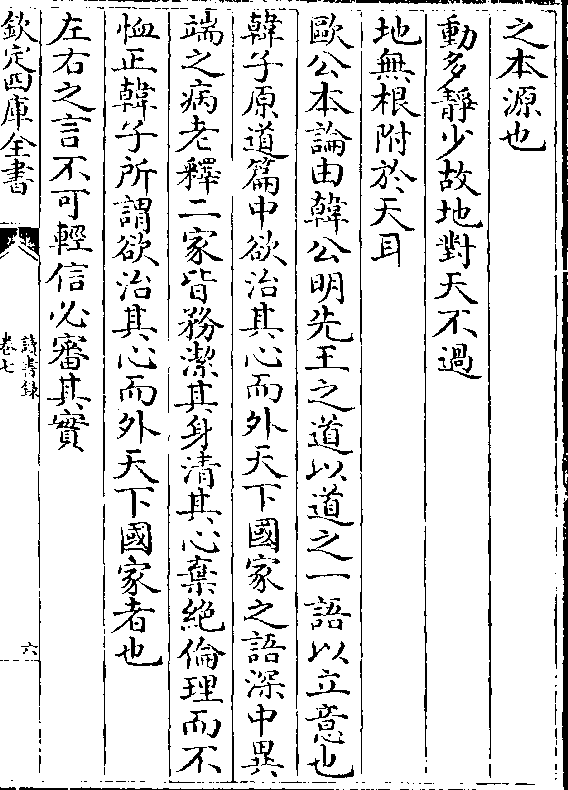 之本源也
動多靜少故地對天不過
地無根附於天耳
歐公本論由韓公明先王之道以道之一語以立意也
韓子原道篇中欲治其心而外天下國家之語深中異
端之病老釋二家皆務潔其身清其心棄絶倫理而不
恤正韓子所謂欲治其心而外天下國家者也
左右之言不可輕信必審其實
欽定四庫全書
讀書録
卷七
六